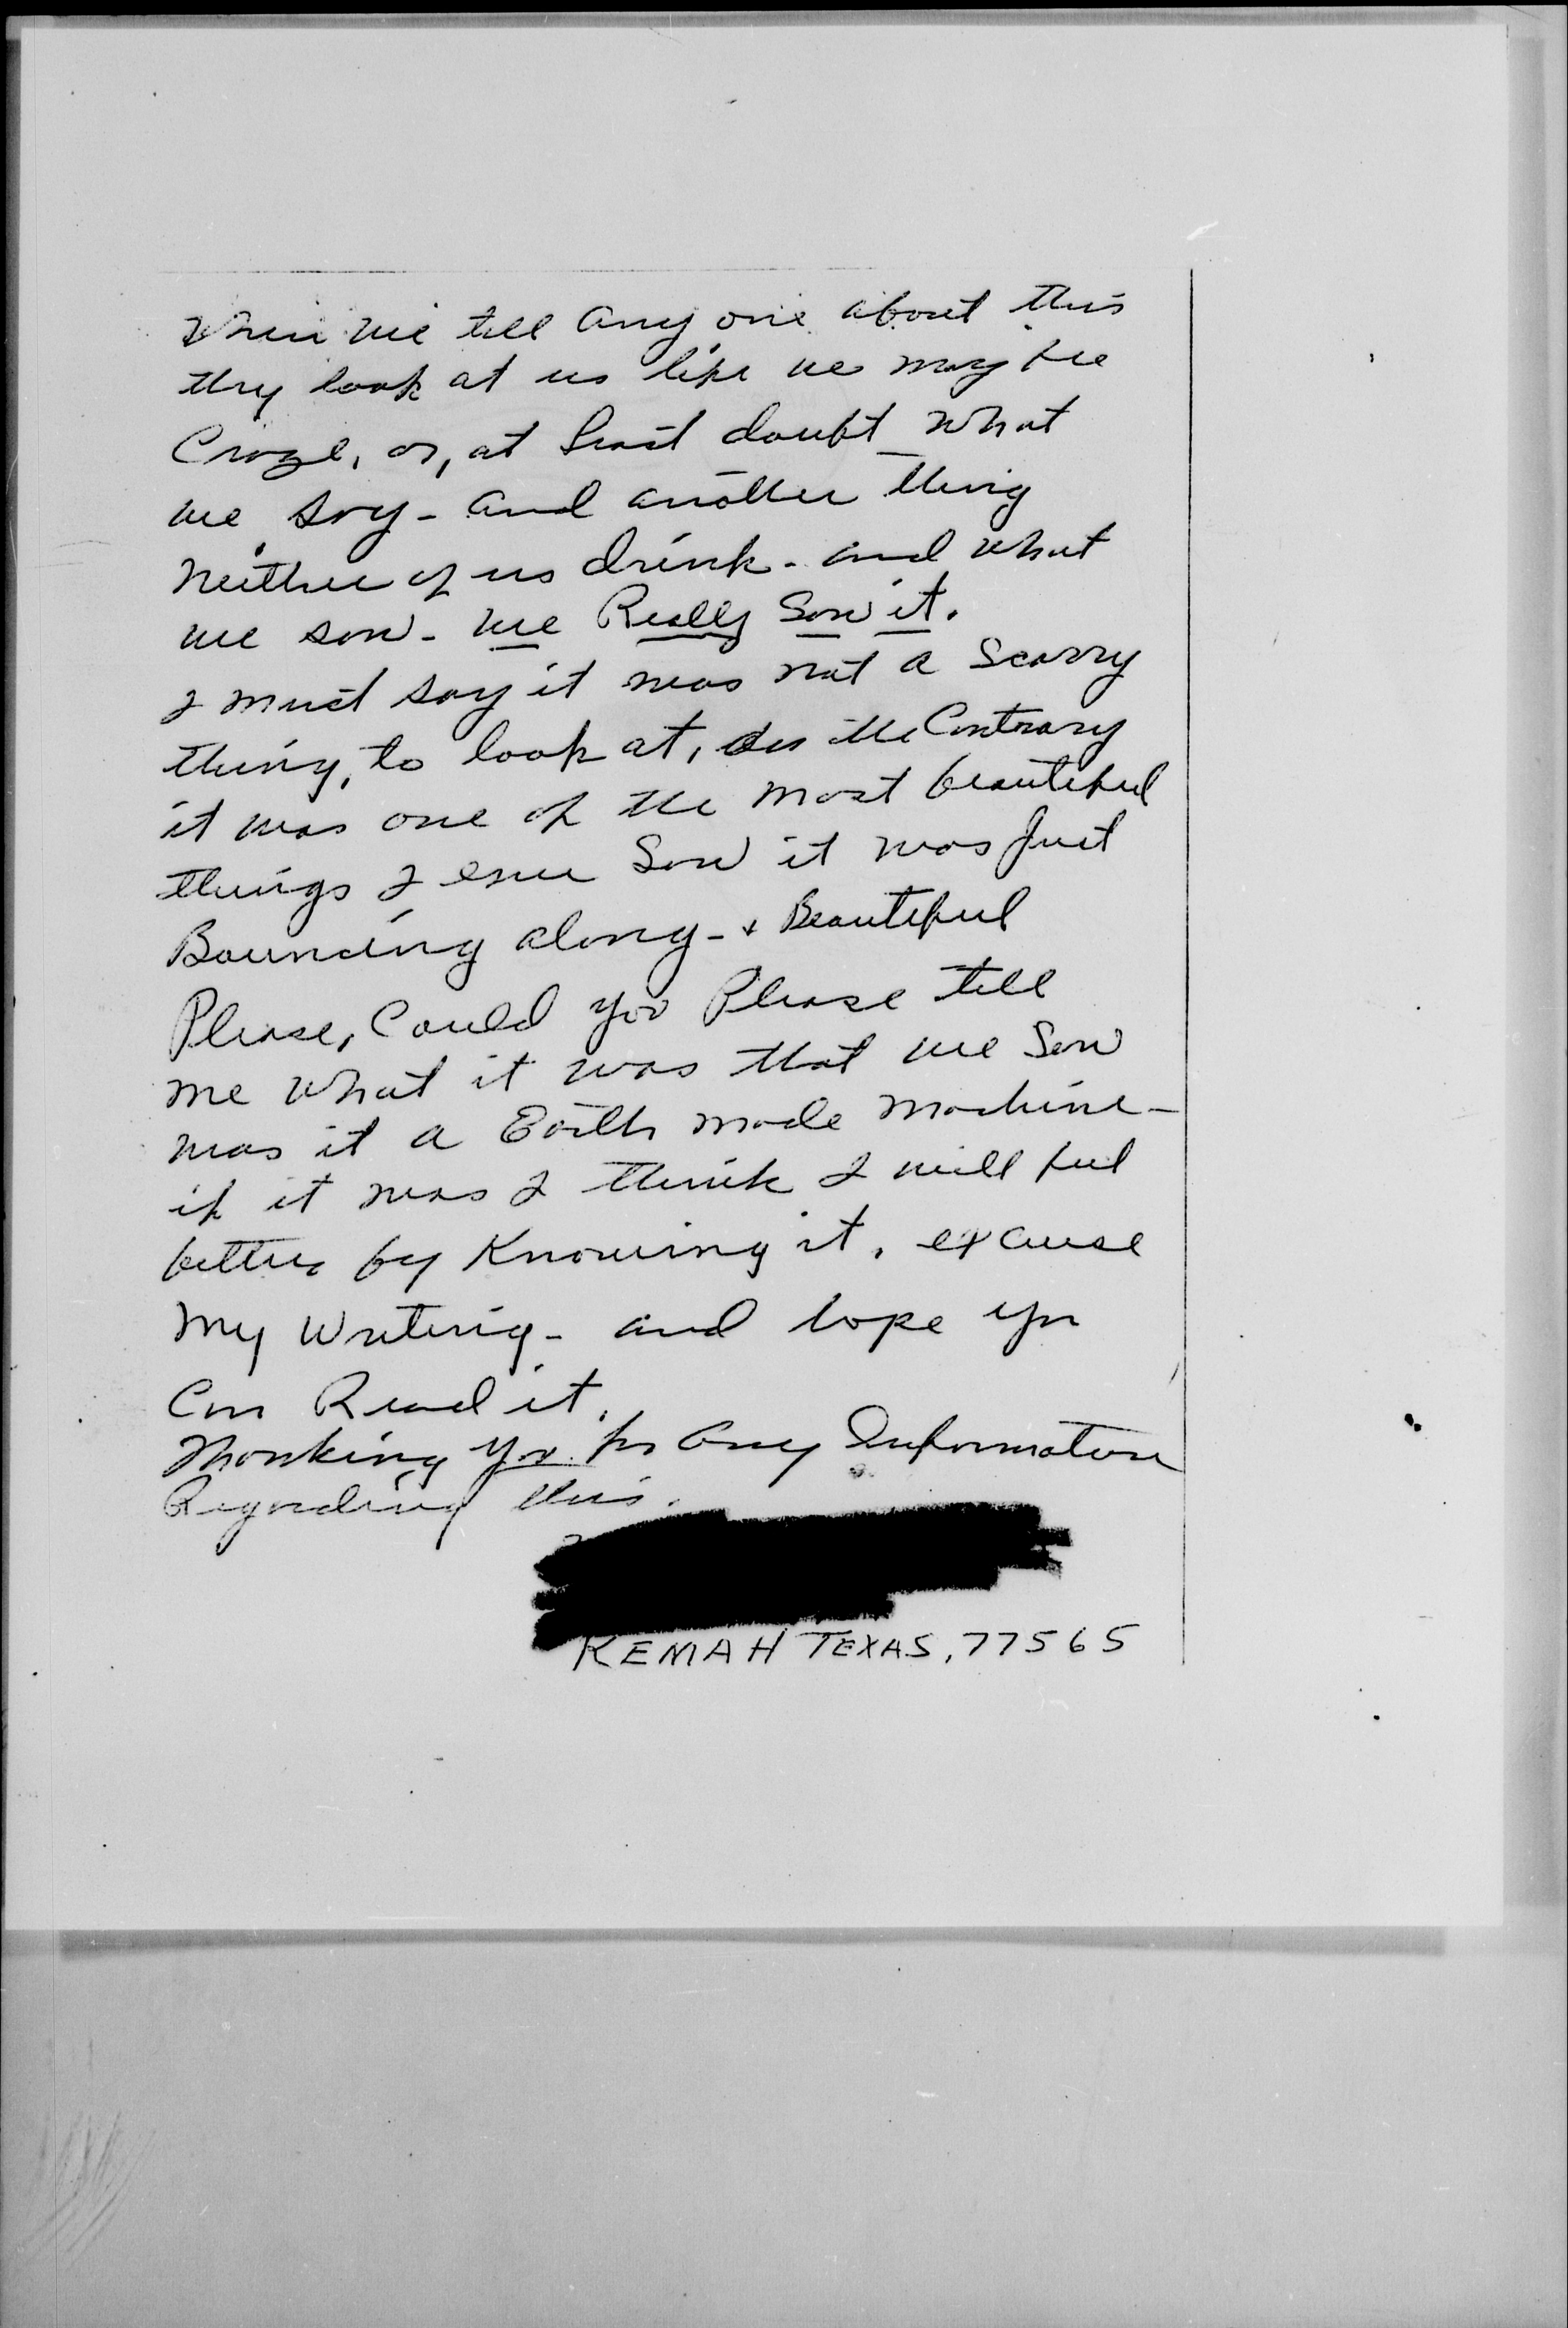 When we tell any one about this
they look at us like we may be
Craze, or, at least doubt what
we say - and another thing
neither of us drink - and what
we saw - we Really Saw it.
I must say it was not a scarry
thing, to look at, the Contrary
it was one of the most beautiful
things I ever Saw it was just
Bouncing along - & Beautiful
Please, Could you Please tell
me what it was that we Saw
was it a Earth made machine -
if it was I think I will feel
better by Knowing it. excuse
my writing - and hope you
Can Read it.
Thanking you for any Information
Regarding this.
KEMAH TEXAS, 77565